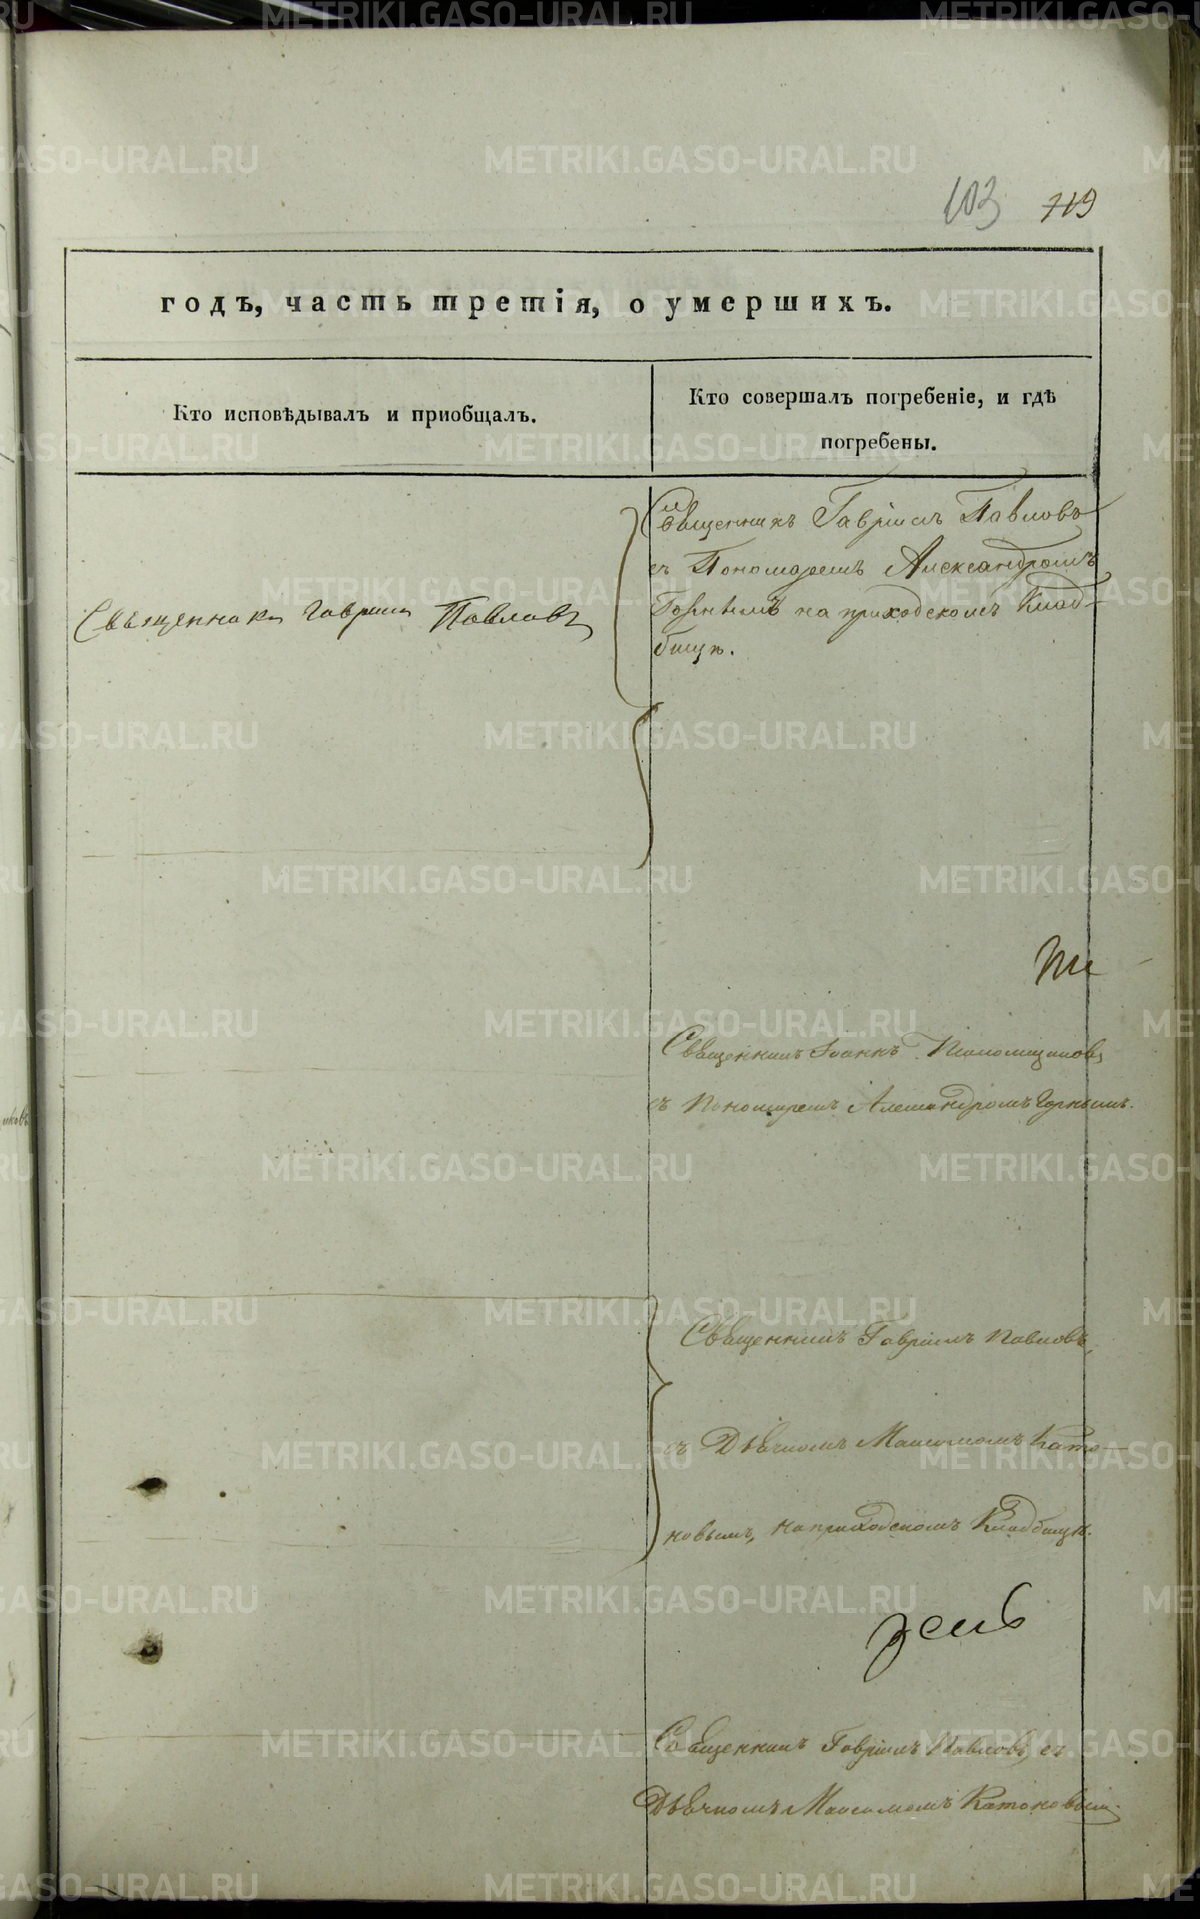 103 719
годъ, часть третія, о умершихъ.
Кто исповѣдывалъ и приобщалъ.
Кто совершалъ погребеніе, и гдѣ
погребены.
Священникъ Гавріилъ Павловъ
Священникъ Гавріилъ Павловъ
съ Пономаремъ Александромъ
Горнымъ на приходскомъ Клад-
бищѣ.
Священникъ Іоаннъ
съ Пономаремъ Александромъ Горнымъ.
Священникъ Гавріилъ Павловъ,
съ Дьячкомъ Максимомъ Като-
новымъ, на приходскомъ Кладбищѣ.
Священникъ Гавріилъ Павловъ, съ
Дьячкомъ Максимомъ Катоновымъ.
METRIKI.GASO-URAL.RU